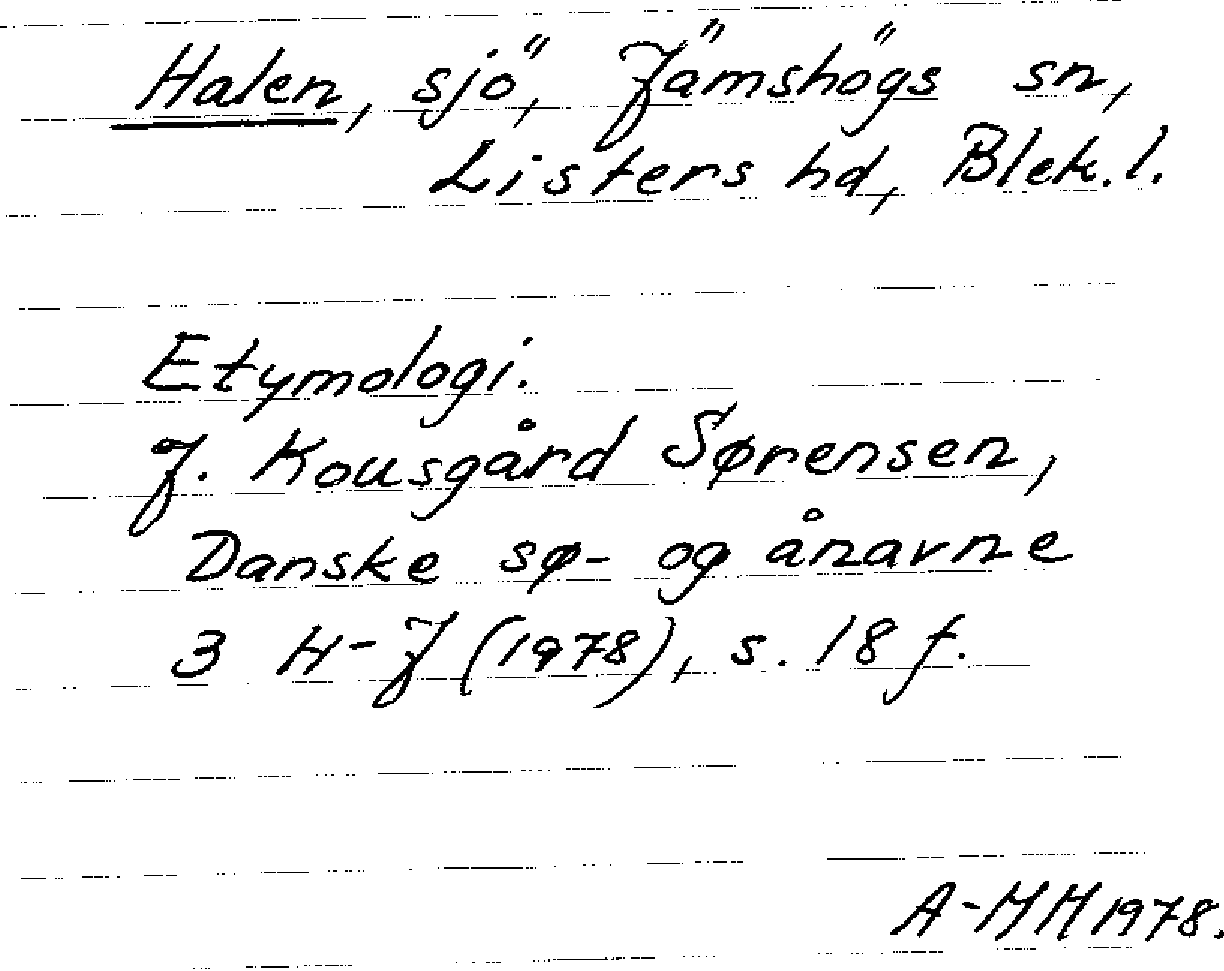 Halen, sjö, Jämshögs sn,
Listers hd, Blek. l.
Etymologi.
J. Kousgård Sørensen,
Danske sø- og ånavne
3 H-J (1978), s. 18 f.
A-MH 1978.